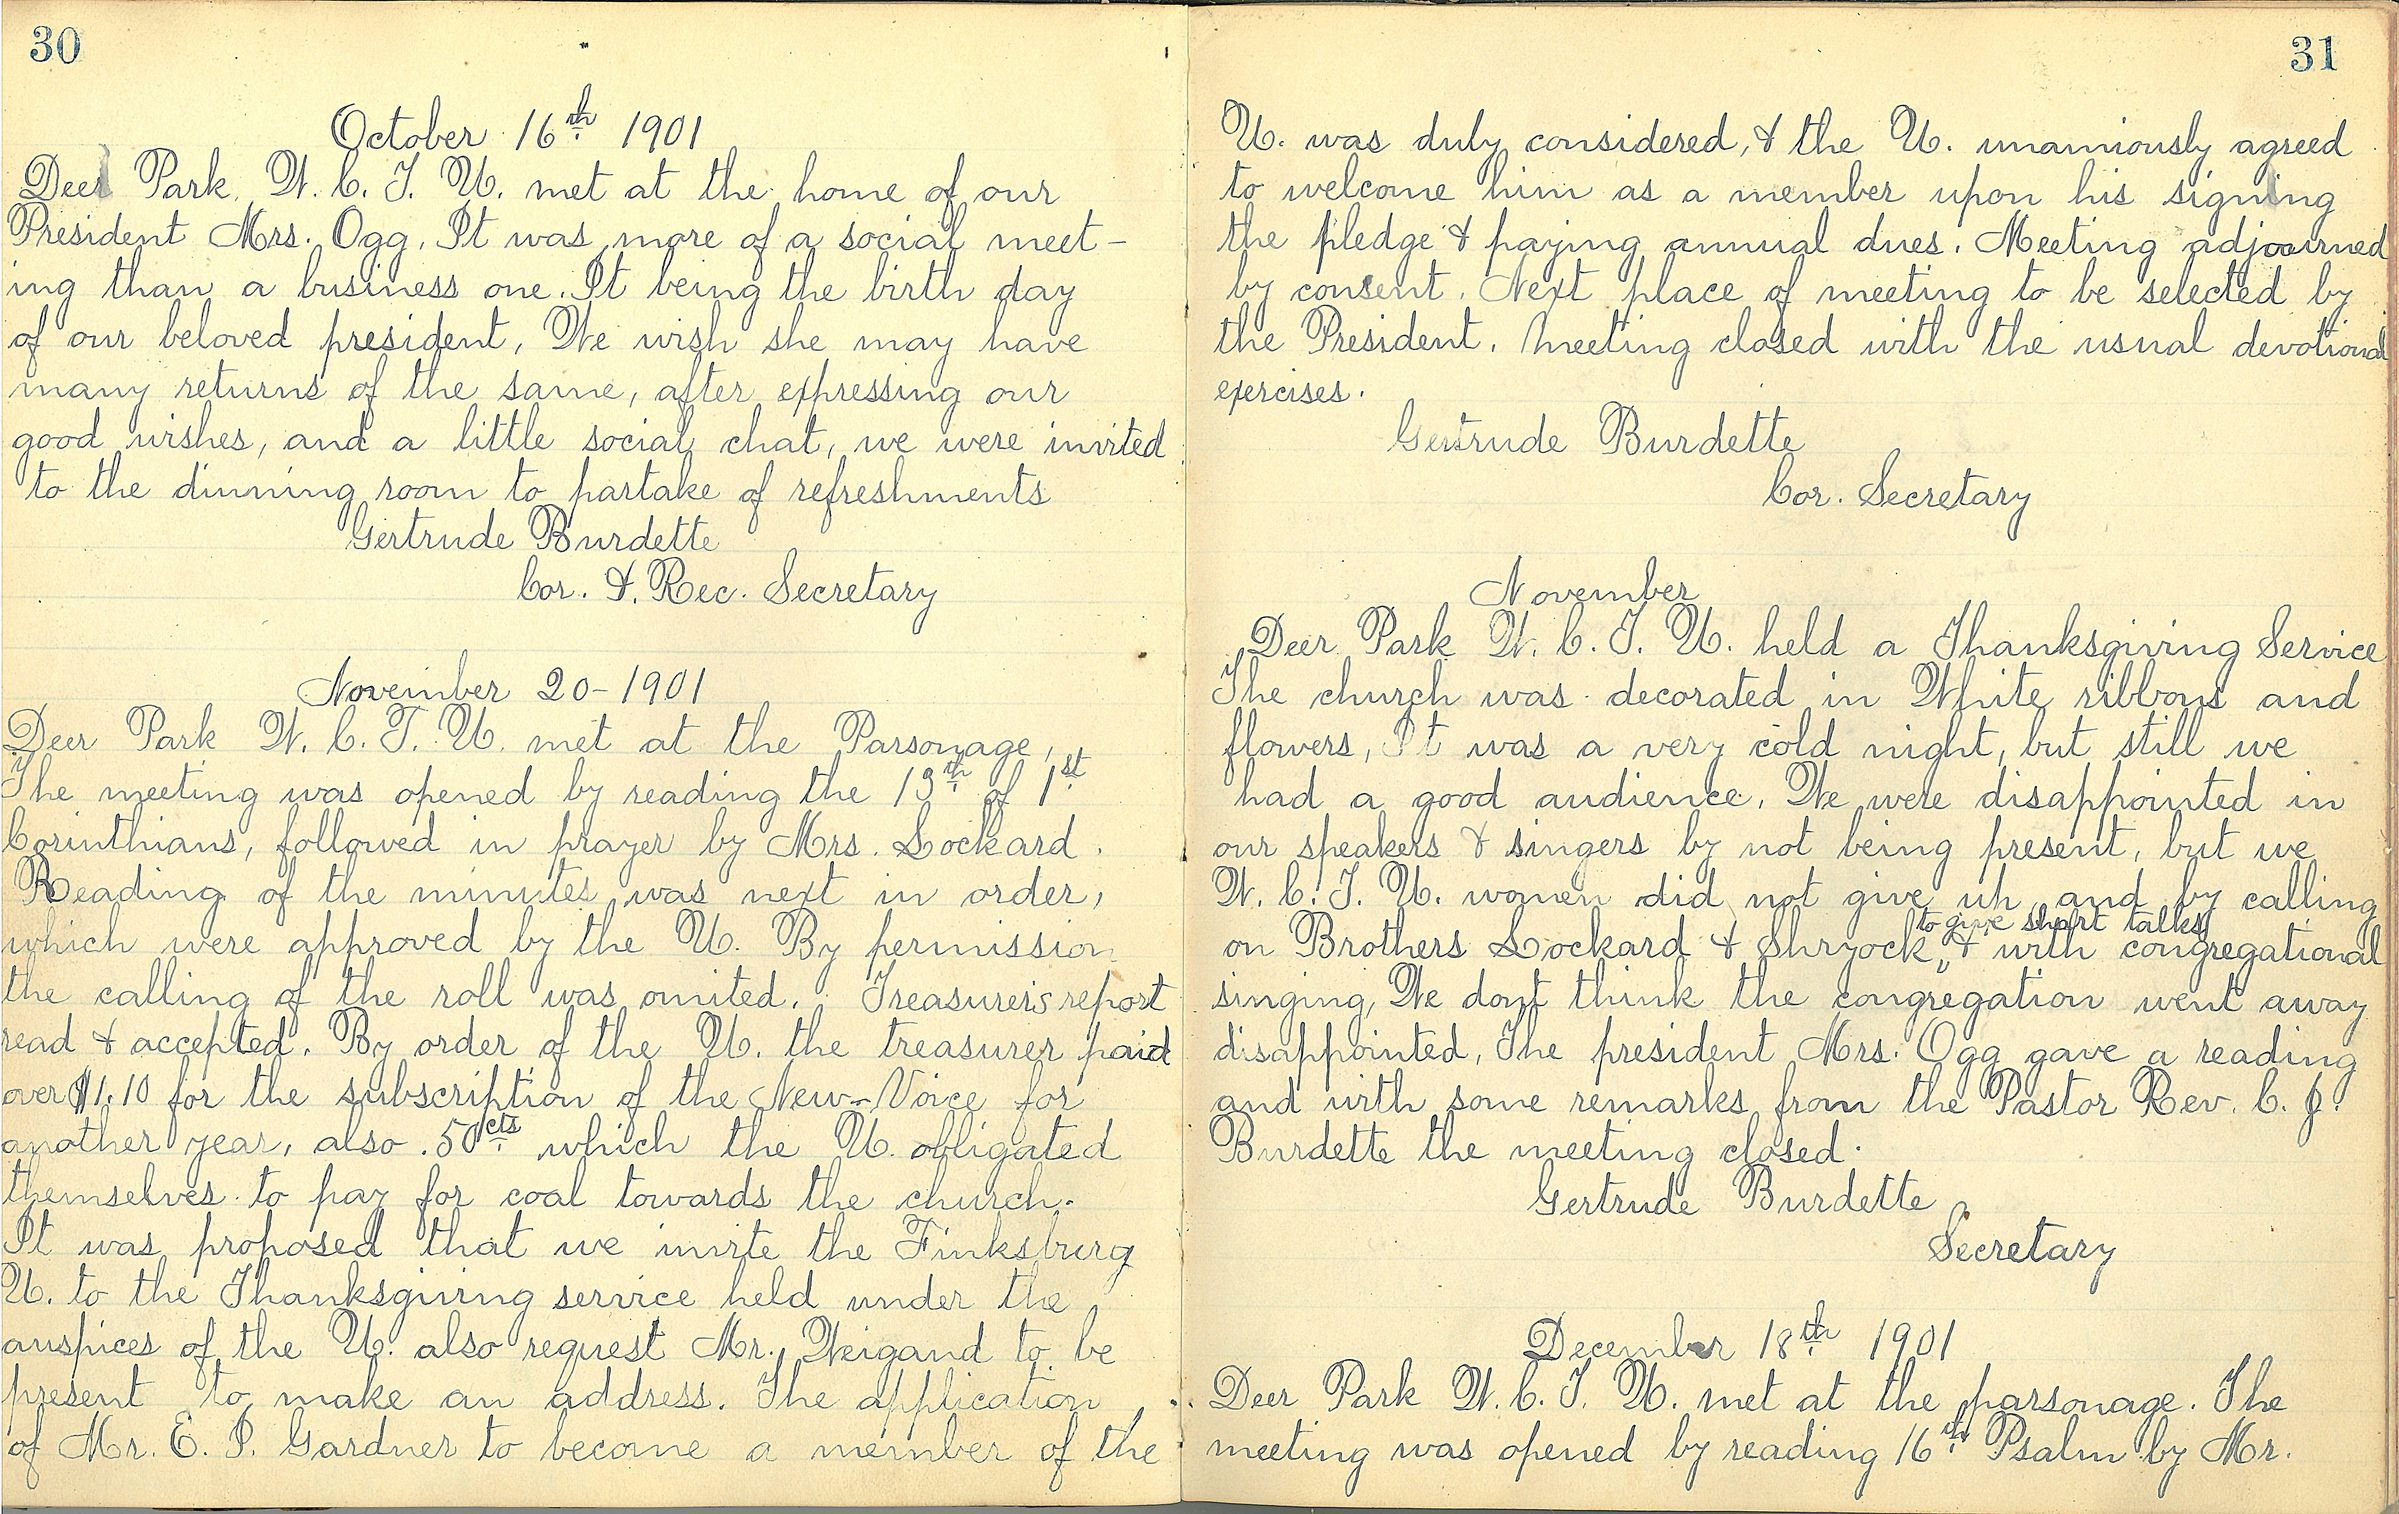 30
October 16th 1901
Deer Park W. C. T. U. met at the home of our
President Mrs. Ogg. It was more of a social meet-
ing than a business one. It being the birth day
of our beloved president, We wish she may have
many returns of the same, after expressing our
good wishes, and a little social chat, we were invited
to the dinning room to partake of refreshments
Gertrude Burdette
Cor. & Rec. Secretary
November 20-1901
Deer Park W. C. T. U. met at the Parsonage,
The meeting was opened by reading the 13th of 1st
Corinthians, followed in prayer by Mrs. Lockard.
Reading of the minutes was next in order,
which were approved by the U. By permission
the calling of the roll was omited. Treasurer's report
read & accepted. By order of the U. the treasurer paid
over $1.10 for the subscription of the New-Voice for
another year, also .50cts which the U. obligated
themselves to pay for coal towards the church.
It was proposed that we invite the Finksburg
U. to the Thanksgiving service held under the
auspices of the U. also request Mr. Weigand to be
present to make an address. The application
of Mr. E. P. Gardner to become a member of the
31
U. was duly considered, & the U. unamiously agreed
to welcome him as a member upon his signing
the pledge & paying annual dues. Meeting adjourned
by consent. Next place of meeting to be selected by
the President. Meeting closed with the usual devotional
exercises.
Gertrude Burdette
Cor. Secretary
November
Deer Park W. C. T. U. held a Thanksgiving Service
The church was decorated in White ribbons and
flowers, It was a very cold night, but still we
had a good audience. We were disappointed in
our speakers & singers by not being present, but we
W. C. T. U. women did not give up and by calling
to give short talks
on Brothers Lockard & Shryock, & with congregational
singing, We dont think the congregation went away
disappointed, The president Mrs. Ogg gave a reading
and with some remarks from the Pastor Rev. C. J.
Burdette the meeting closed.
Gertrude Burdette
Secretary
December 18th 1901
Deer Park W. C. T. U. met at the parsonage. The
meeting was opened by reading 16th Psalm by Mr.